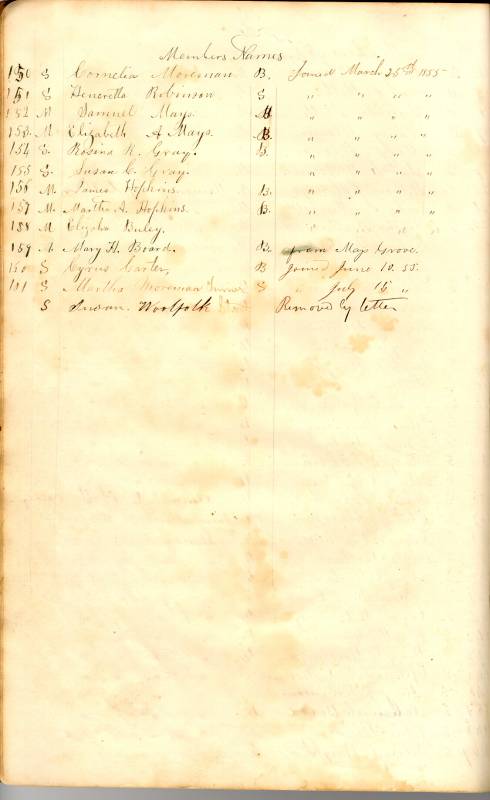 Members Names
150 S Cornelia Moreman B. Joined March 25th 1855
151 S Heneretta Robinson S " " " "
152 M Samuel Mays. " " " "
153. M Elizabeth A Mays. B. " " " "
154 S. Rosina R. Gray. B. " " " "
155 S. Susan C. Gray. " " " "
156 M. James Hopkins. B. " " " "
157 M. Martha A. Hopkins. B. " " " "
158 M Elizabe " " " "
159 Mary H. Board. B. from May Grove.
160 S Cyrus Carter, B Joined June 10. 55.
161 S Martha Moreman S " July 15 "
S Susan. Woolfolk Removed by letter